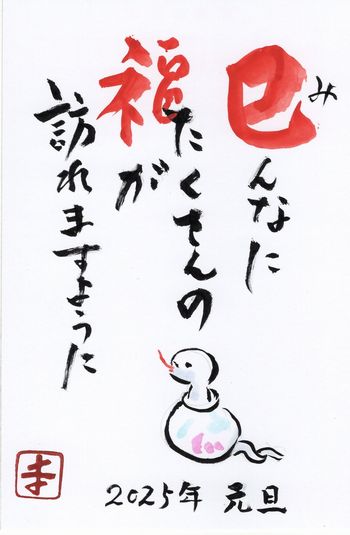 巳んなに
み
たくさんの
福が
訪れますように
2025年 元旦